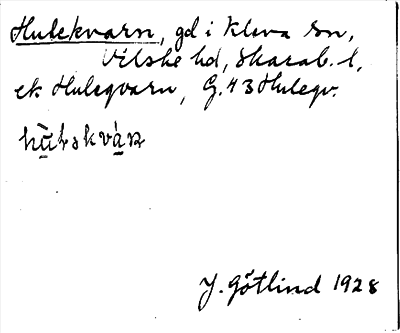 Hulekvarn, gd i Kleva sn,
Vilske hd, Skarab. l,
ek Huleqvarn, G. 43 Huleqv.
J. Götlind 1928